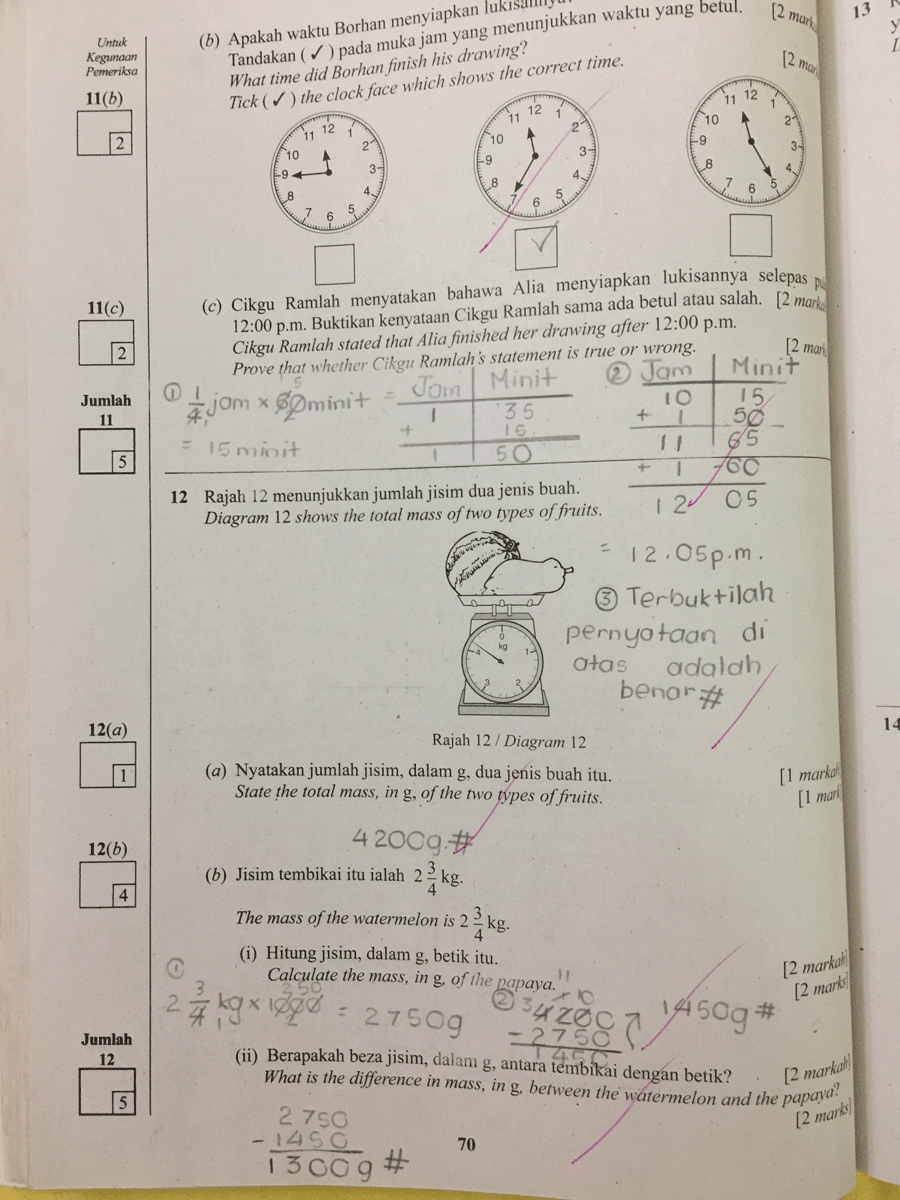 (b) Apakah waktu Borhan menyiapkan
[2 mark
Tandakan ( ✓ ) pada muka jam yang menunjukkan waktu yang betul.
What time did Borhan finish his drawing?
[2 mar
Tick ( ✓ ) the clock face which shows the correct time.
Untuk
Kegunaan
Pemeriksa
11(b)
2
12 1 2 3 4 5 6 7 8 9 10 11
12 1 2 3 4 5 6 7 8 9 10 11
12 1 2 3 4 5 6 7 8 9 10 11
✓
11(c)
2
(c) Cikgu Ramlah menyatakan bahawa Alia menyiapkan lukisannya selepas
12:00 p.m. Buktikan kenyataan Cikgu Ramlah sama ada betul atau salah. [2 marka
Cikgu Ramlah stated that Alia finished her drawing after 12:00 p.m.
Prove that whether Cikgu Ramlah's statement is true or wrong. [2 mar
① 1/4 jam × 60 minit = Jam | Minit
1 | 35
+ 15
1 | 50
= 15 minit
② Jam | Minit
10 | 15
+ 1 | 50
11 | 65
+ 1 | -60
12 | 05
= 12.05 p.m.
③ Terbuktilah
pernyataan di
atas adalah
benar #
Jumlah
11
5
12 Rajah 12 menunjukkan jumlah jisim dua jenis buah.
Diagram 12 shows the total mass of two types of fruits.
0
kg
4 1
3 2
Rajah 12 / Diagram 12
12(a)
1
(a) Nyatakan jumlah jisim, dalam g, dua jenis buah itu. [1 markah
State the total mass, in g, of the two types of fruits. [1 mark
4200g.#
12(b)
4
(b) Jisim tembikai itu ialah 2 3/4 kg.
The mass of the watermelon is 2 3/4 kg.
(i) Hitung jisim, dalam g, betik itu. [2 markah]
Calculate the mass, in g, of the papaya. [2 marks]
① 2 3/4 kg × 1000 = 2750g
250
② 4200
- 2750
1450
1450g #
Jumlah
12
5
(ii) Berapakah beza jisim, dalam g, antara tembikai dengan betik? [2 markah]
What is the difference in mass, in g, between the watermelon and the papaya?
[2 marks]
2750
- 1450
1300g #
70
13
14